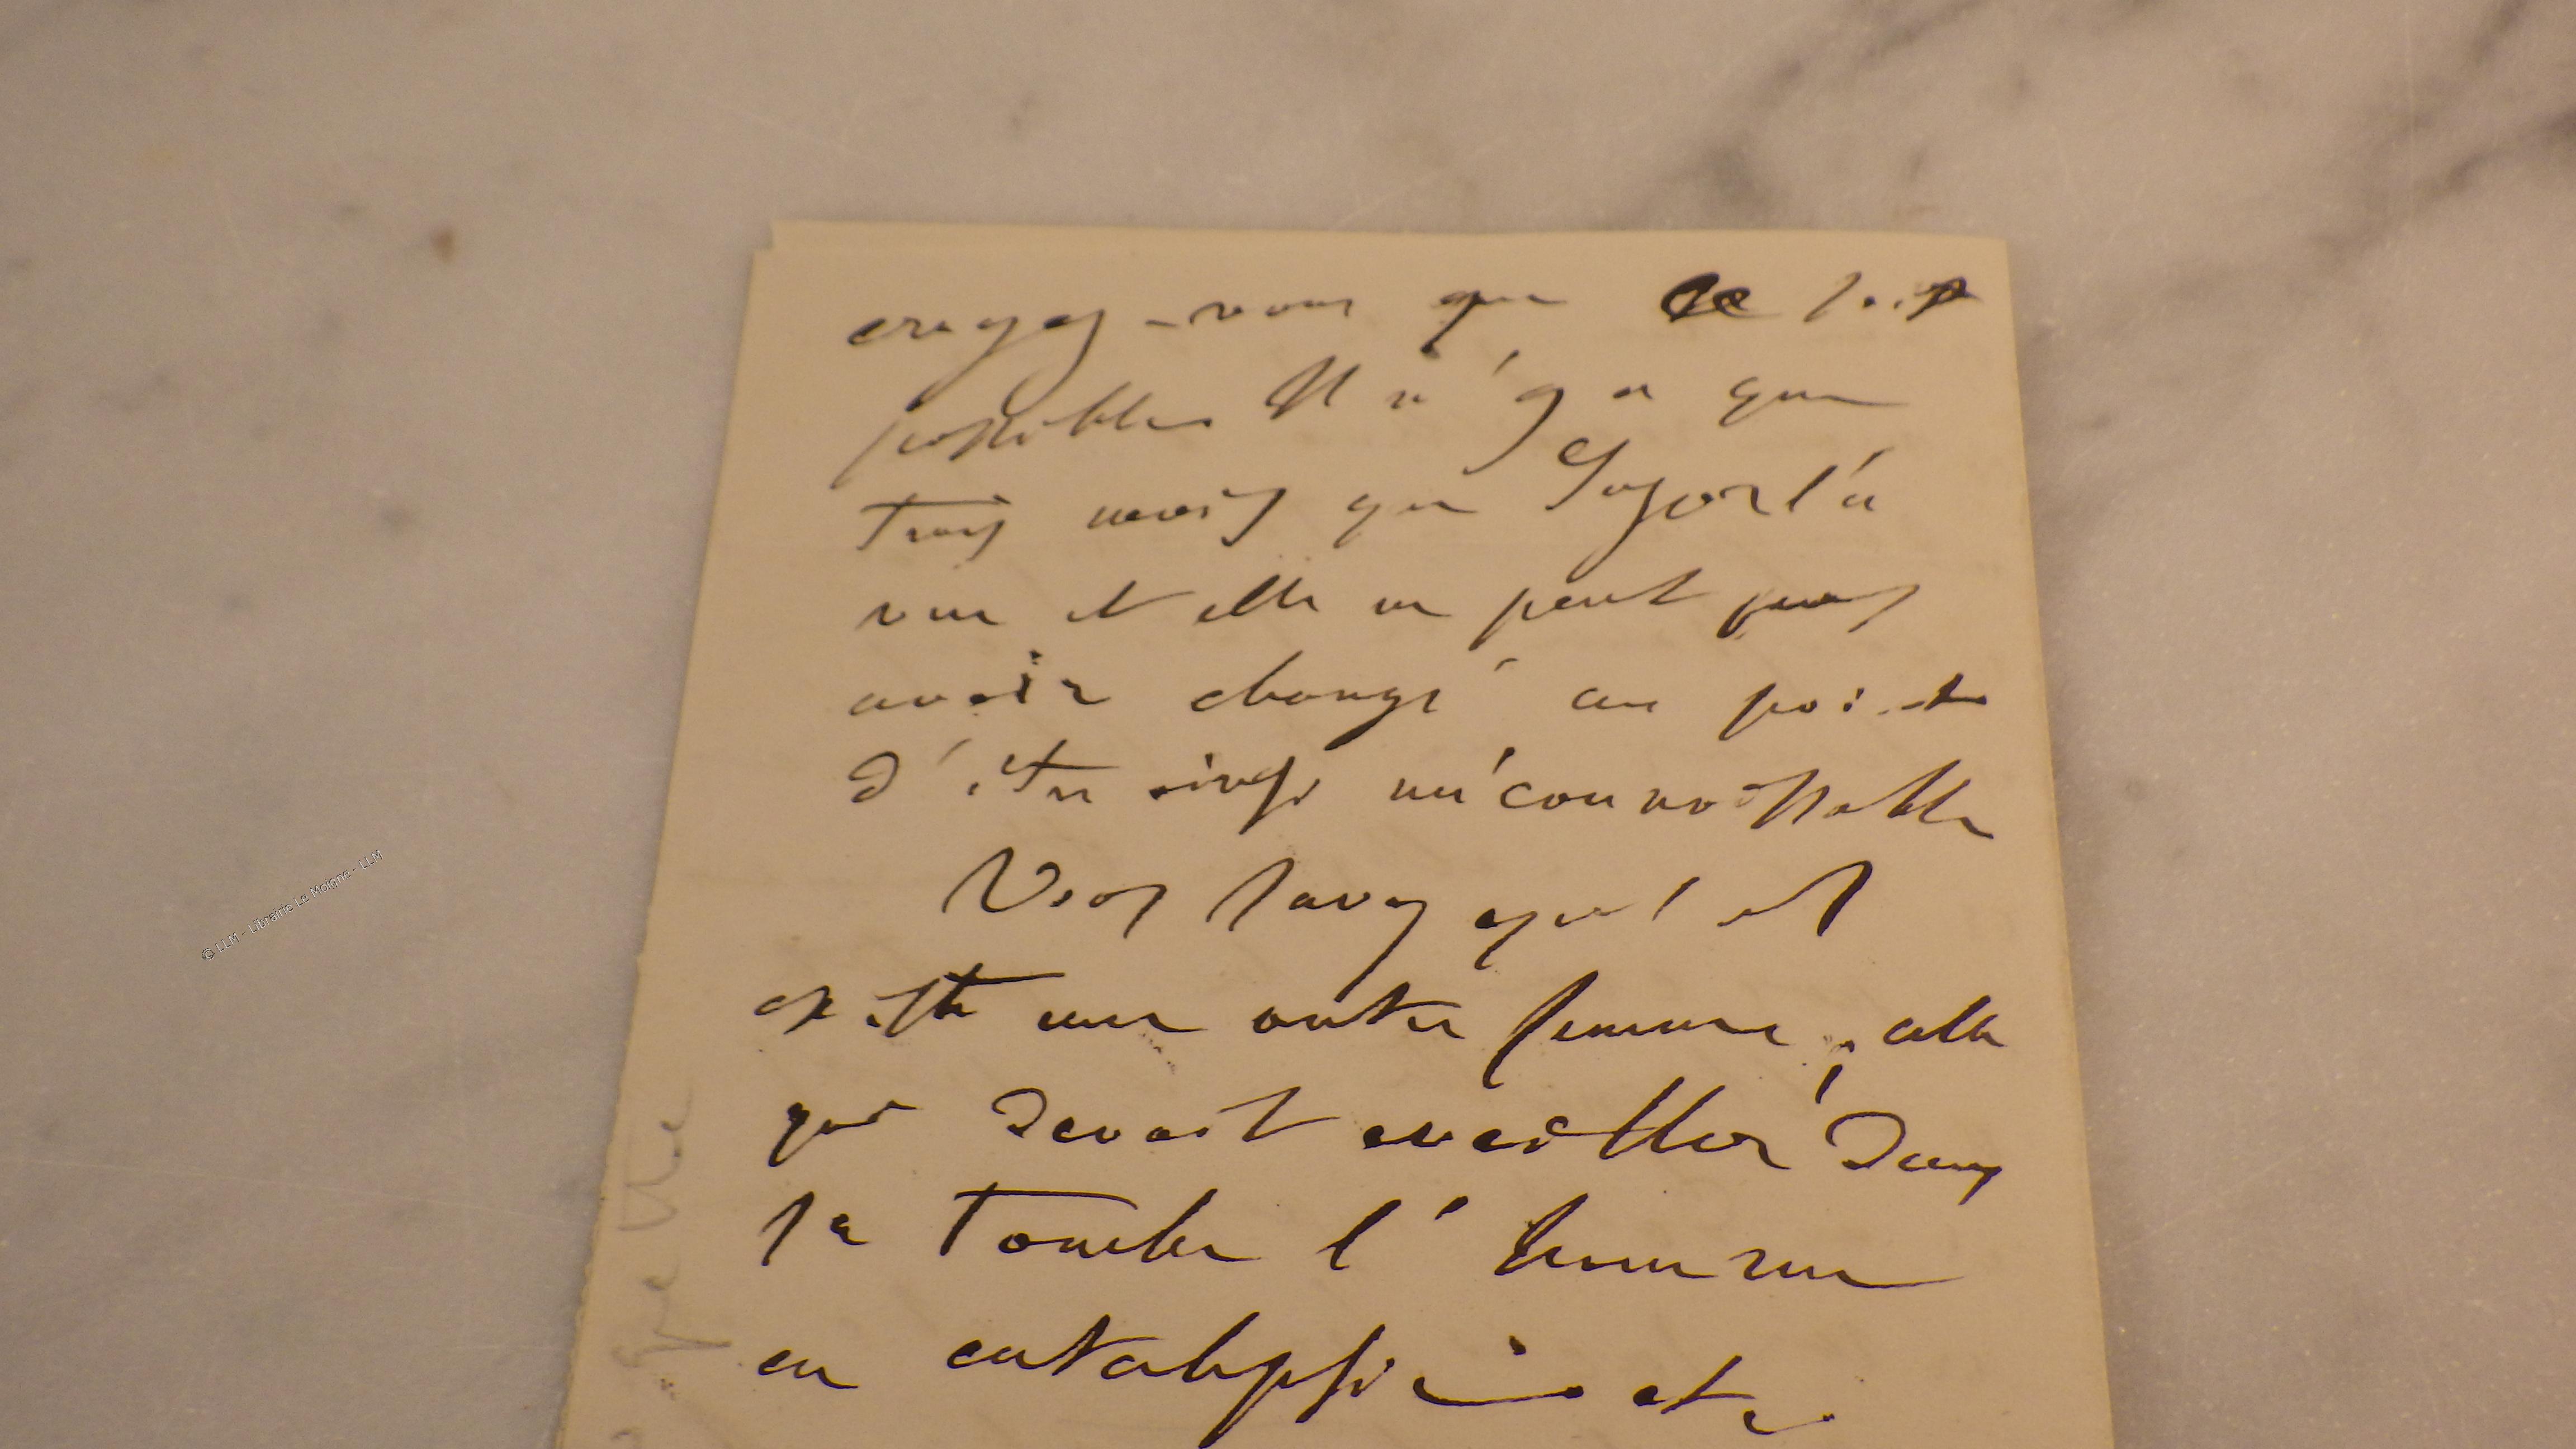 croyez-vous que ce soit
possible. Il n'y a que
trois mois que Lagor l'a
vue et elle ne peut pas
avoir changé au point
d'être ainsi méconnaissable
Vous savez qu'il
existe une autre femme, celle
qui devait éveiller dans
sa tombe l'homme
en catalepsie. etc.
© LLM - Librairie Le Moigne - LLM